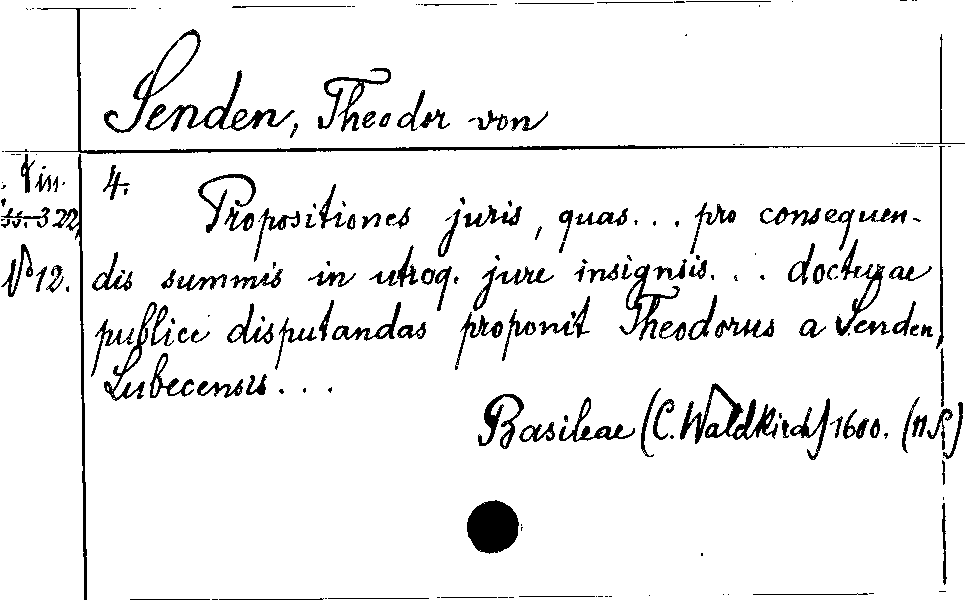 Senden, Theodor von
Diss. 4. Propositiones juris, quas... pro consequen-
322,
No 12. dis summis in utroq. jure insignsis... docturae
publice disputandas proponit Theodorus a Senden,
Lubecensis...
Basileae (C. Waldkirch) 1600. (II S.)